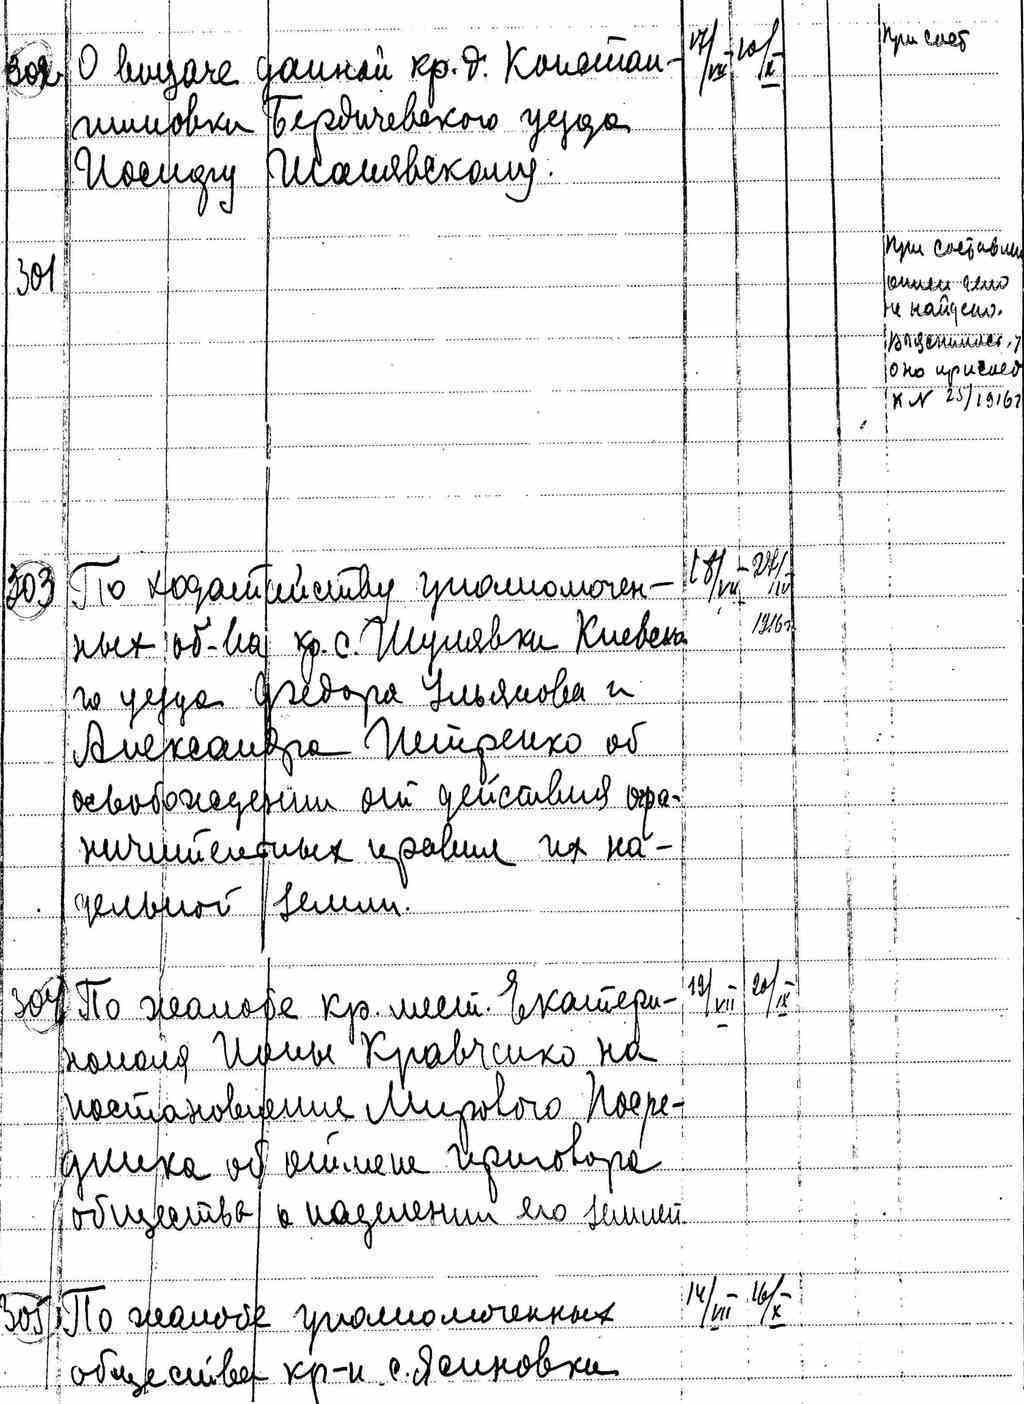 302. О выдаче данной кр. д. Констан- 17/VII – 10/X – При сост
тиновки Бердичевского уезда
Иосифу Шанявскому.
301 При составлении
описи дело
не найдено.
Выяснилось, ч
оно присоед
к № 25/1916 г
303 По ходатайству уполномочен- 18/VII – 27/ –
ных об-ва кр. с. Шулявки Киевско 1916 г.
го уезда Федора Ульянова и
Александра Петренко об
освобождении от действия огра-
ничительных правил их на-
дельной земли.
304 По жалобе кр. мест. Екатери- 19/VII – 20/IX –
нополя Ионы Кравченко на
постановление Мирового Посре-
дника об отмене приговора
общества о наделении его землей
305 По жалобе уполномоченных 14/VII – 16/X –
общества кр-н с. Ясиновки